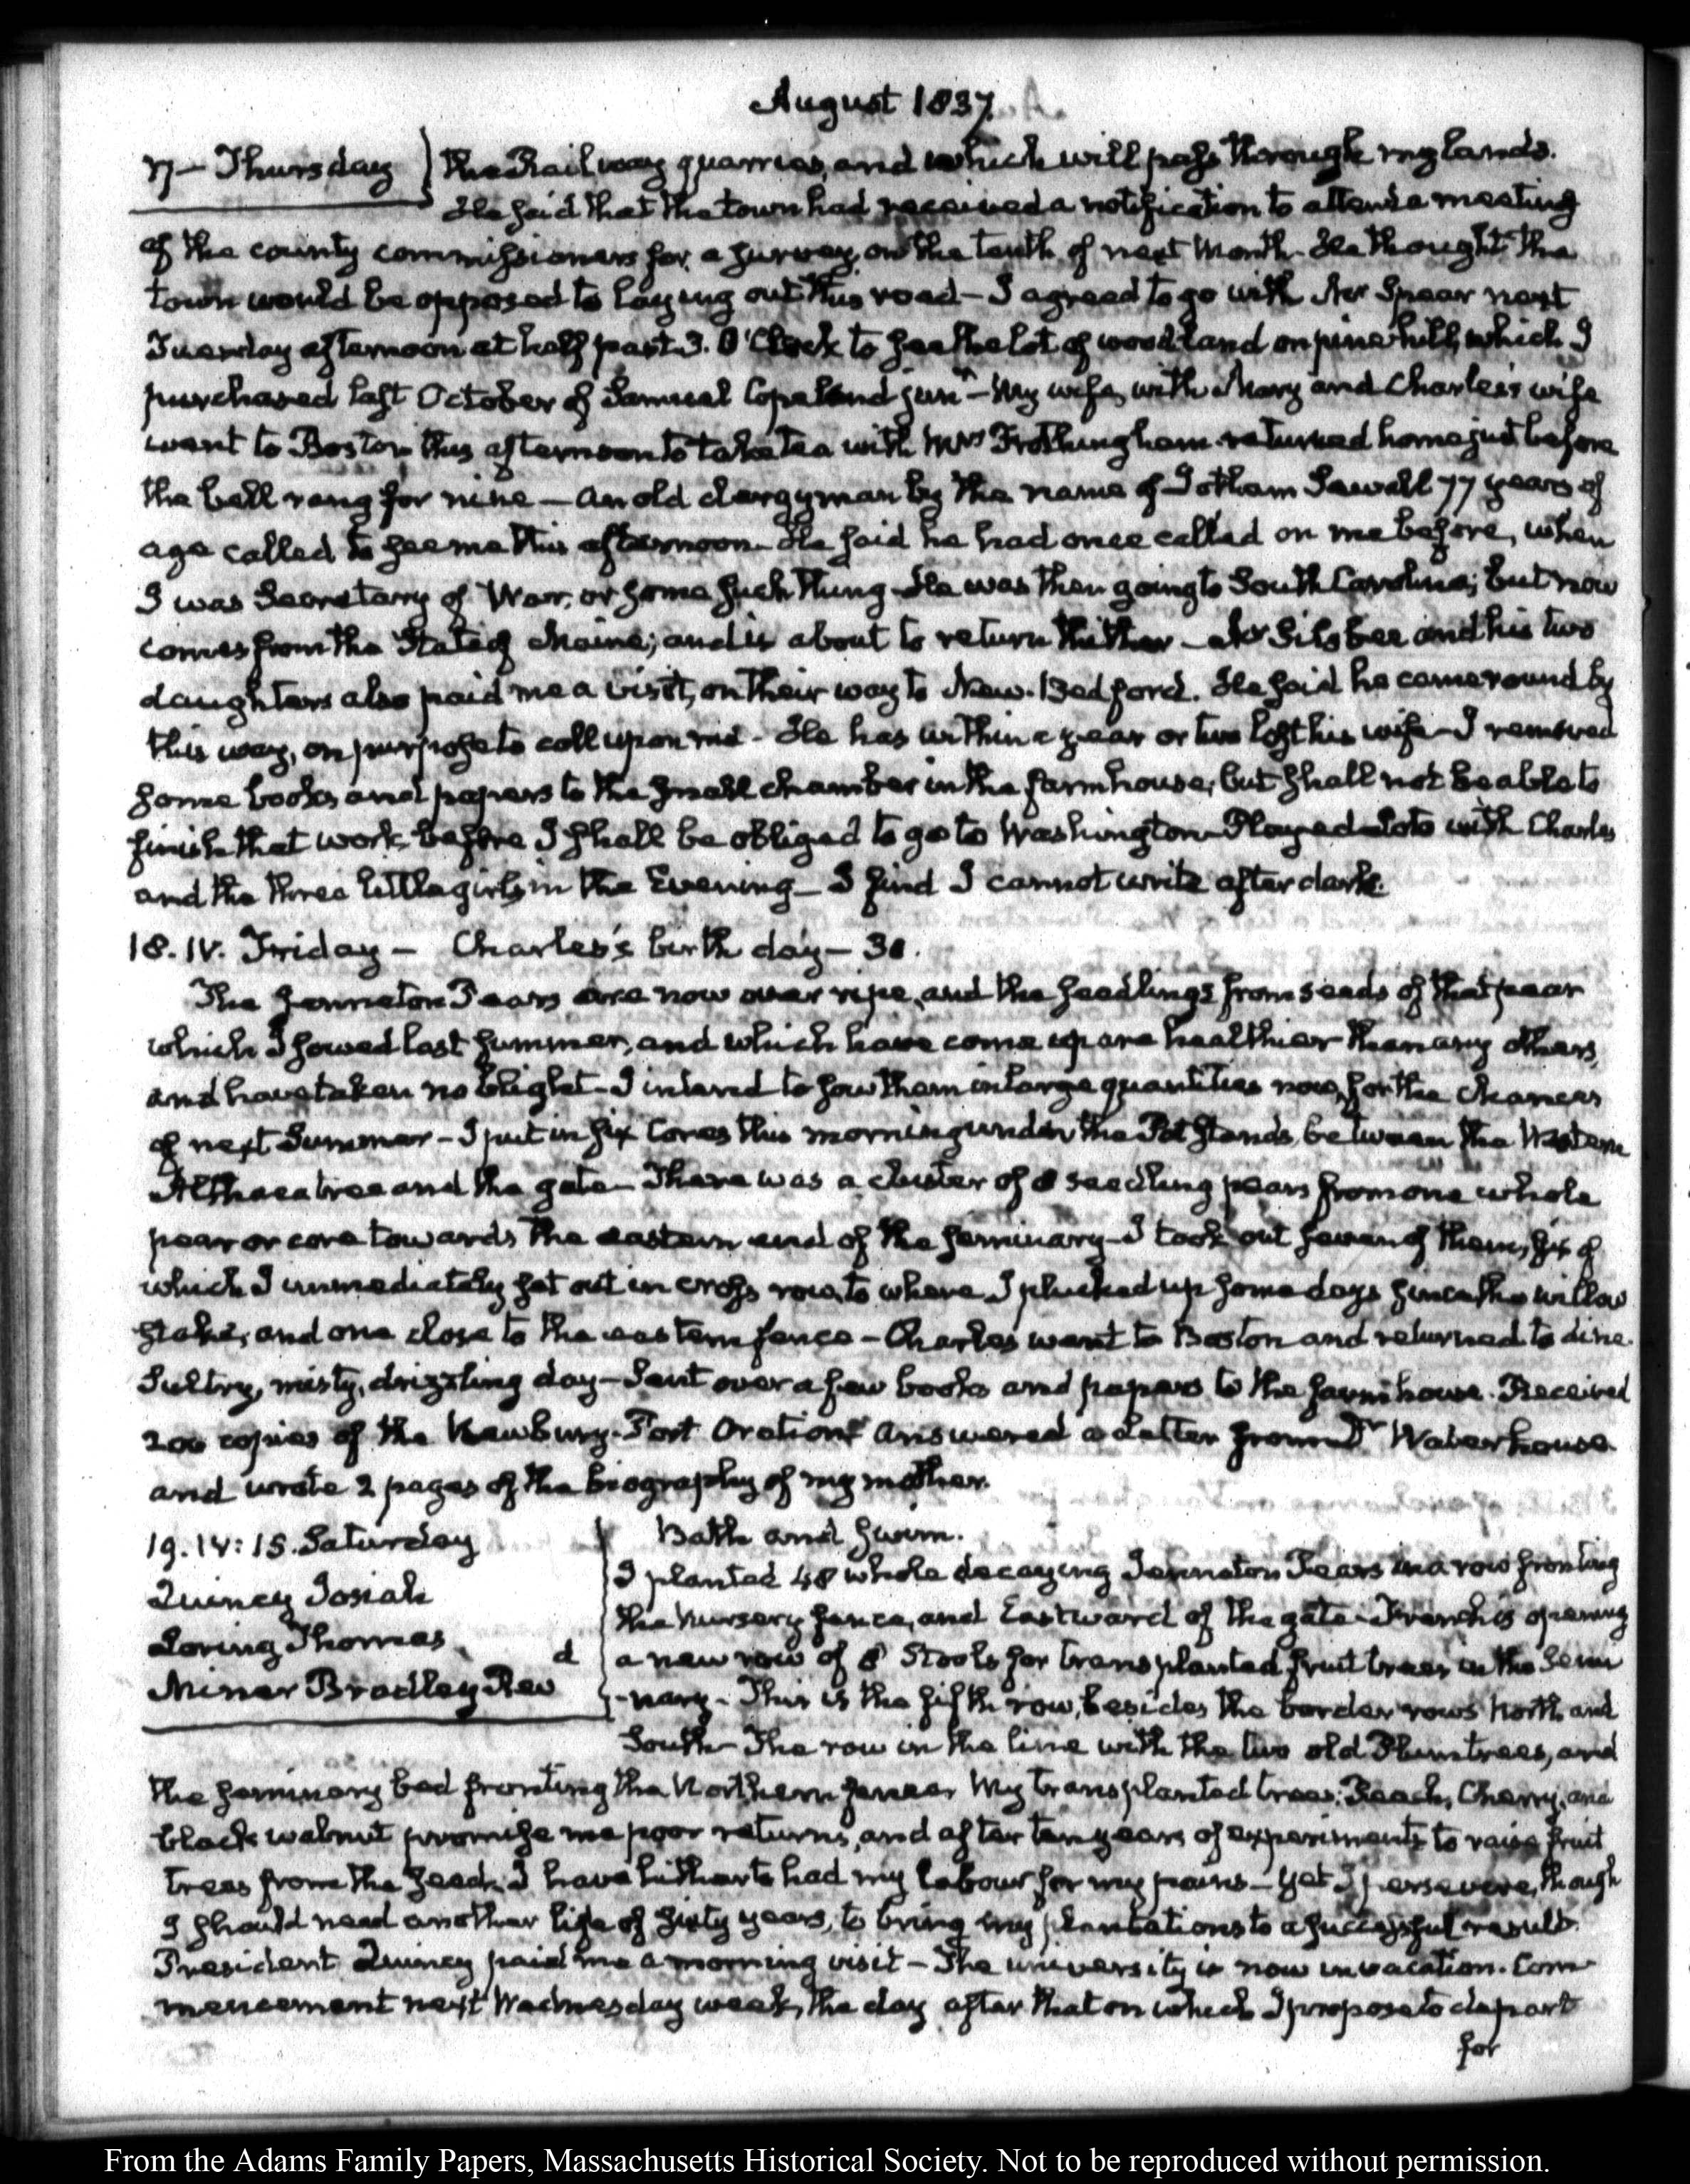 August 1837.
17 — Thursday
the Railway quarries, and which will pass through my lands.
He said that the town had received a notification to attend a meeting
of the county commissioners for a survey, on the tenth of next Month. He thought the
town would be opposed to laying out this road — I agreed to go with Mr Spear next
Tuesday afternoon at half past 3. O'Clock to see the lot of woodland on pine hill, which I
purchased last October of Samuel Copeland junr — My wife, with Mary and Charles's wife
went to Boston this afternoon to take tea with Mrs Frothingham. returned home just before
the bell rang for nine — An old clergyman by the name of Jotham Sewall 77 years of
age called to see me this afternoon — He said he had once called on me before, when
I was Secretary of War, or some such thing — He was then going to South Carolina; but now
comes from the State of Maine; and is about to return thither — Mr Silsbee and his two
daughters also paid me a visit, on their way to New-Bedford. He said he came round by
this way, on purpose to call upon me — He has within a year or two lost his wife — I removed
some books and papers to the small chamber in the farmhouse; but shall not be able to
finish that work before I shall be obliged to go to Washington — Played Loto with Charles
and the three little girls in the Evening — I find I cannot write after dark.
18. IV. Friday — Charles's birth day — 30.
The Jenneton Pears are now over ripe, and the seedlings from seeds of that pear
which I sowed last summer, and which have come up are healthier than any others,
and have taken no blight — I intend to sow them in large quantities now, for the chances
of next Summer — I put in six Cores this morning under the Pot stands, between the Western
Althaea tree and the gate — There was a cluster of 8 seedling pears from one whole
pear or core towards the eastern end of the seminary — I took out seven of them, six of
which I immediately set out in cross row, to where I plucked up some days since the willow
stake, and one close to the eastern fence — Charles went to Boston and returned to dine.
Sultry, misty, drizzling day — Sent over a few books and papers to the farm house. Received
200 copies of the Newbury-Port Oration answered a letter from Dr Waterhouse.
and wrote 2 pages of the biography of my mother.
19. IV: 15. Saturday
Quincy Josiah
Loring Thomas
d
Miner Bradley Rev
Bath and swim.
I planted 48 whole decaying Jenneton Pears in a row fronting
the Nursery fence, and Eastward of the gate — French is opening
a new row of 8 Stools for transplanted fruit trees, in the Semi
-nary — This is the fifth row, besides the border rows North and
South — The row in the line with the two old Plumtrees, and
the seminary bed fronting the Northern fence. My transplanted trees, Peach, Cherry, and
black walnut promise me poor returns, and after ten years of experiments to raise fruit
trees from the seed, I have hitherto had my labour for my pains — yet I persevere, though
I should need another life of sixty years, to bring my plantations to a successful result.
President Quincy paid me a morning visit — The university is now in vacation. Com-
mencement next Wednesday week, the day after that on which I propose to depart
for
From the Adams Family Papers, Massachusetts Historical Society. Not to be reproduced without permission.